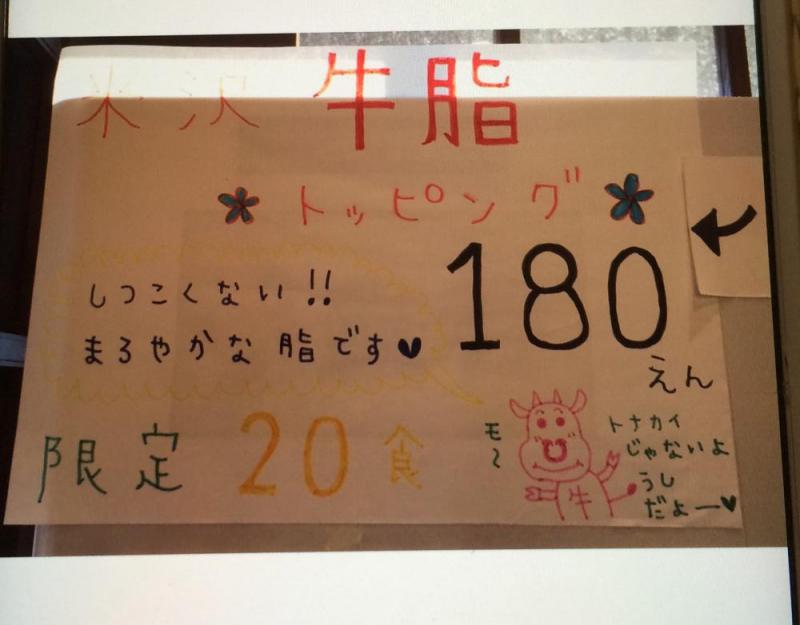 米沢 牛脂
トッピング
180
えん
しつこくない!!
まろやかな脂です♥
限定 20食
モ〜
トナカイ
じゃないよ
うし
だよー♥
牛